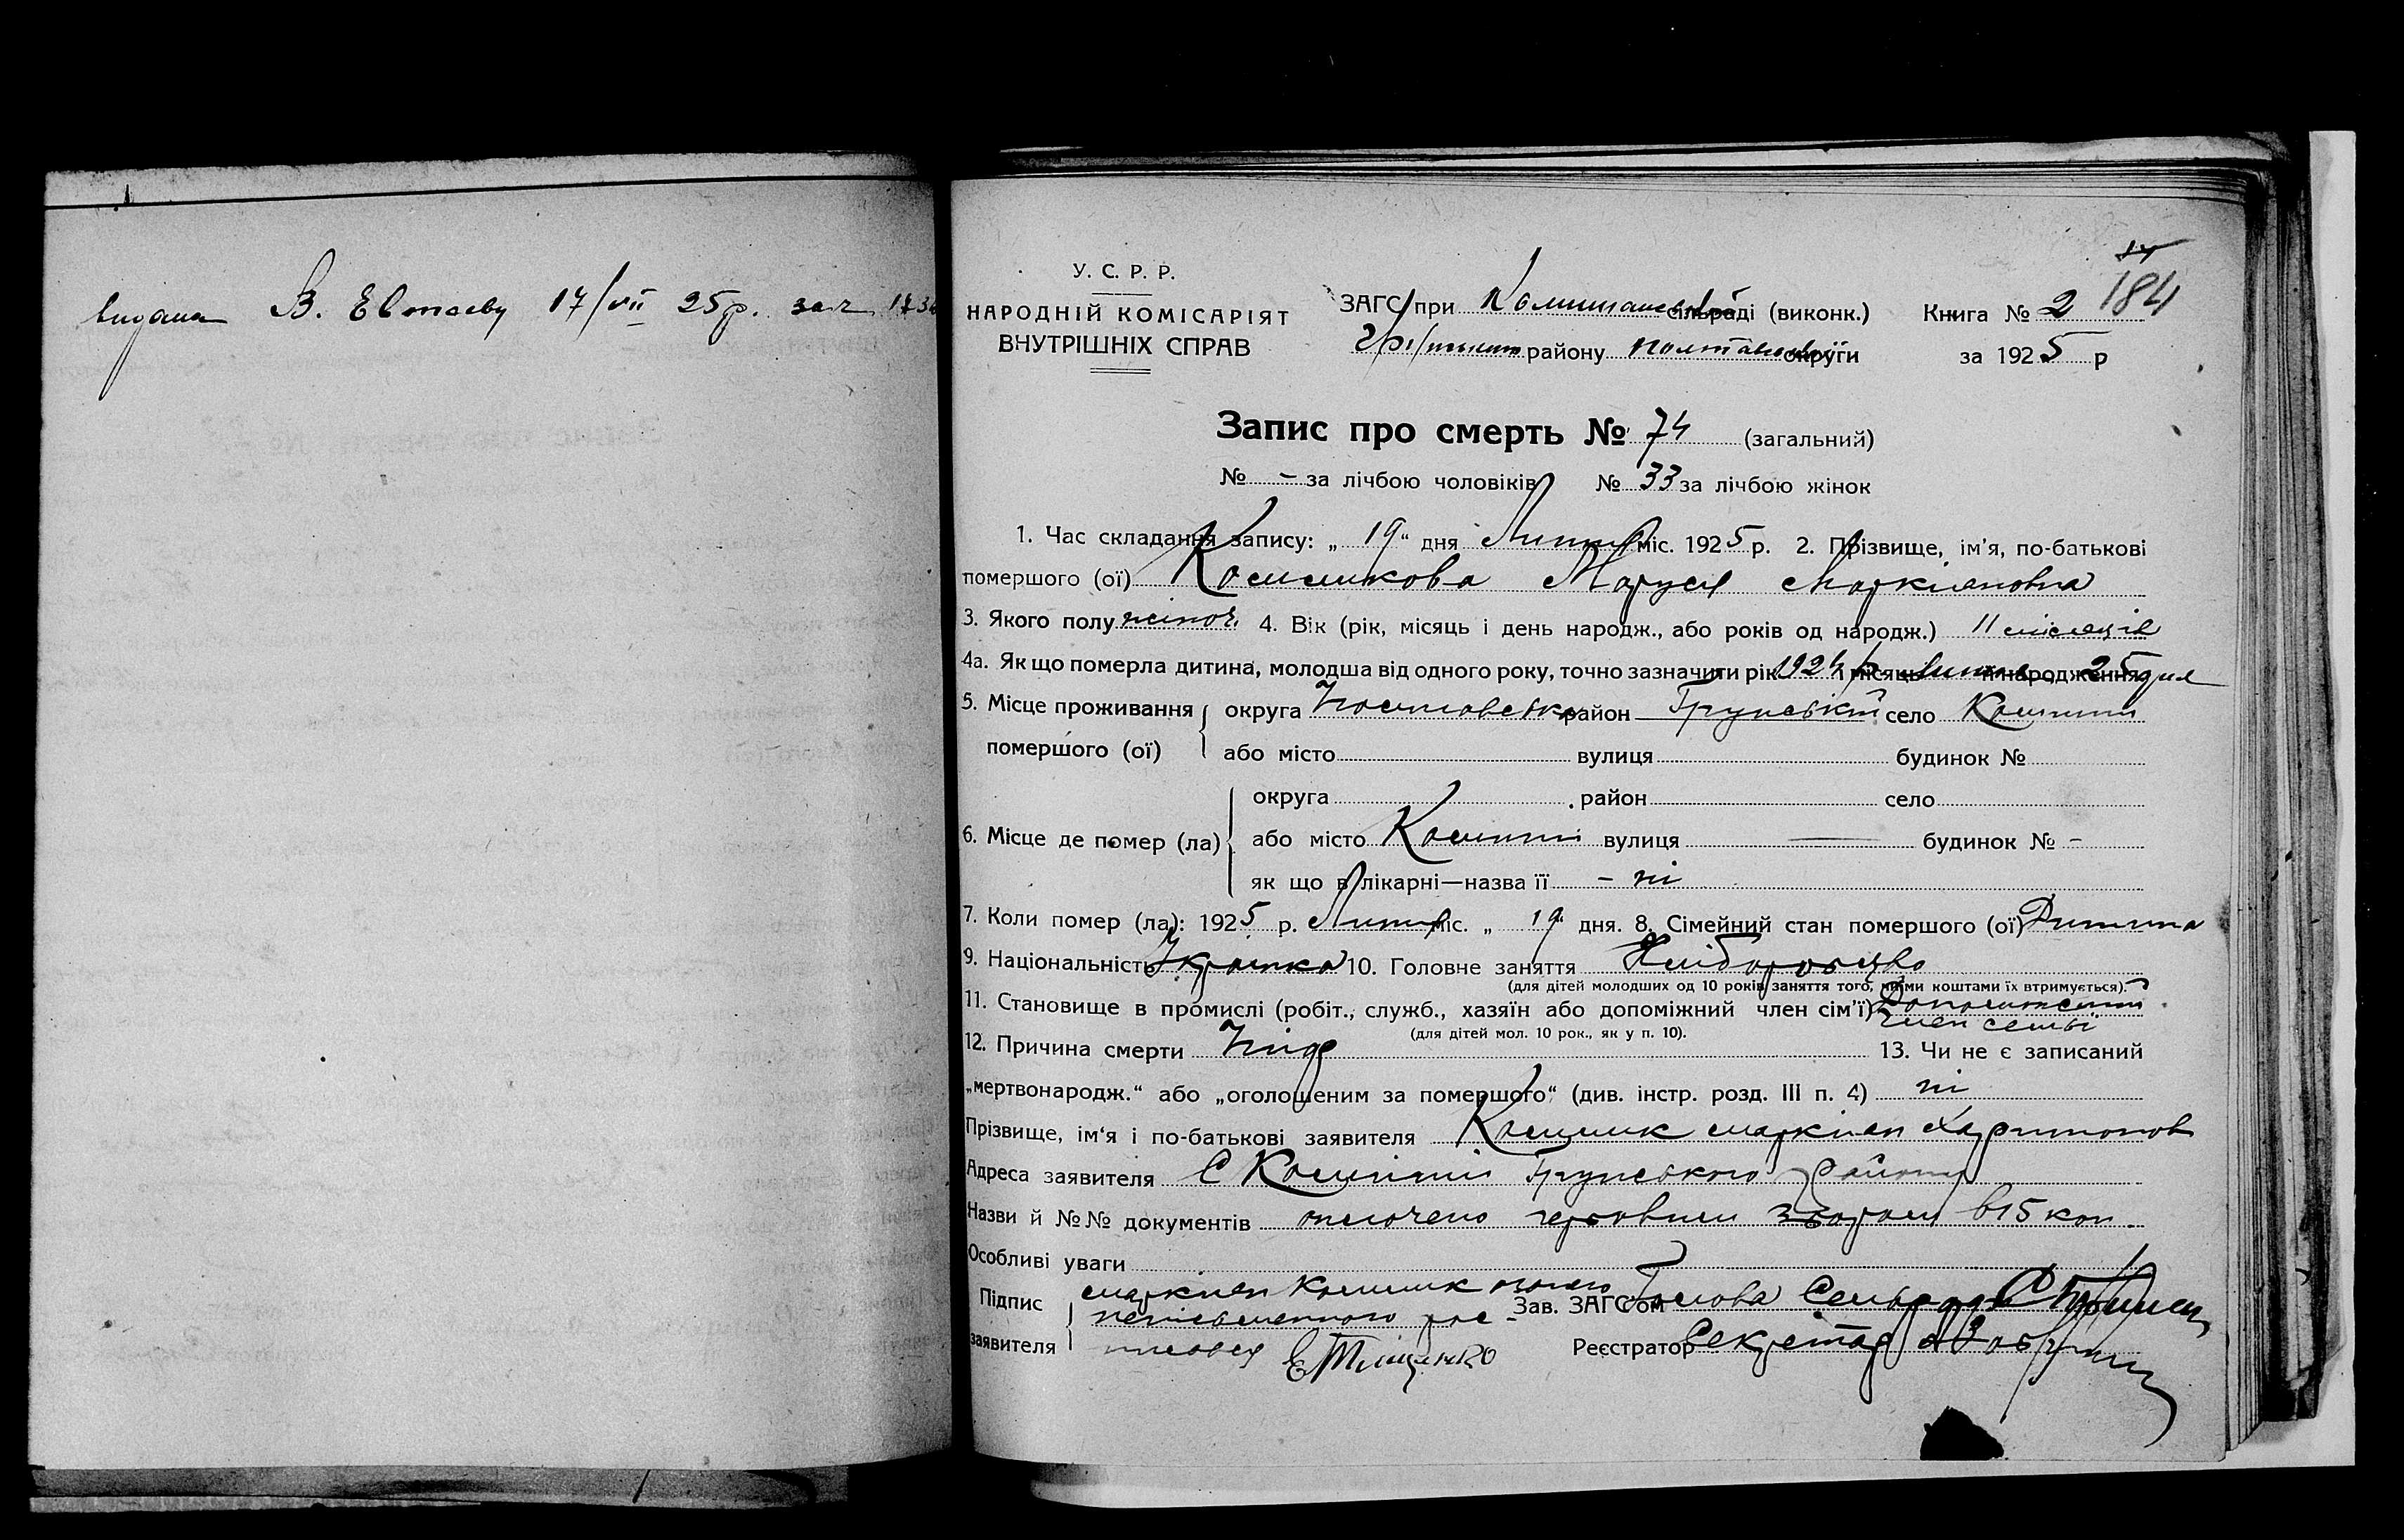 видана В. Евтаеву 17/VII 25р. за ч
184
У. С. Р. Р.
НАРОДНІЙ КОМІСАРІЯТ
ВНУТРІШНІХ СПРАВ
ЗАГС при сільраді (виконк.)
району Полтавської округи
Книга № 2
за 1925 р
Запис про смерть № 74 (загальний)
№ - за лічбою чоловіків № 33 за лічбою жінок
1. Час складання запису: „ 19 “ дня Липня міс. 1925 р. 2. Прізвище, ім'я, по-батькові
помершого (ої) Маруся Маркіяновна
3. Якого полу жіноч. 4. Вік (рік, місяць і день народж., або років од народж.) 11 місяців
4а. Як що померла дитина, молодша від одного року, точно зазначити рік 1924 р і місяць народження 25 дня
5. Місце проживання округа Полтавська район Грунський село
помершого (ої) або місто вулиця будинок №
округа район село
6. Місце де помер (ла) або місто вулиця — будинок № -
як що в лікарні—назва її - ні
7. Коли помер (ла): 1925 р. Липня міс. „ 19 “ дня. 8. Сімейний стан помершого (ої) Дитина
9. Національність Українка 10. Головне заняття Хліборобство
(для дітей молодших од 10 років заняття того, чиїми коштами їх втримується).
11. Становище в промислі (робіт., служб., хазяїн або допоміжний член сім'ї) Допоміжний
член семьї
(для дітей мол. 10 рок., як у п. 10).
12. Причина смерти 13. Чи не є записаний
„мертвонародж.“ або „оголошеним за помершого“ (див. інстр. розд. III п. 4) ні
Прізвище, ім'я і по-батькові заявителя Маркиян Харитонов
Адреса заявителя С Грунського Району
Назви й №№ документів оплочено гербовим збором в 15 коп.
Особливі уваги
Підпис Маркиян
заявителя неписьменного рос-
писався Е Тищенко
Зав. ЗАГС'ом Голова Сельради
Реєстратор Секретар